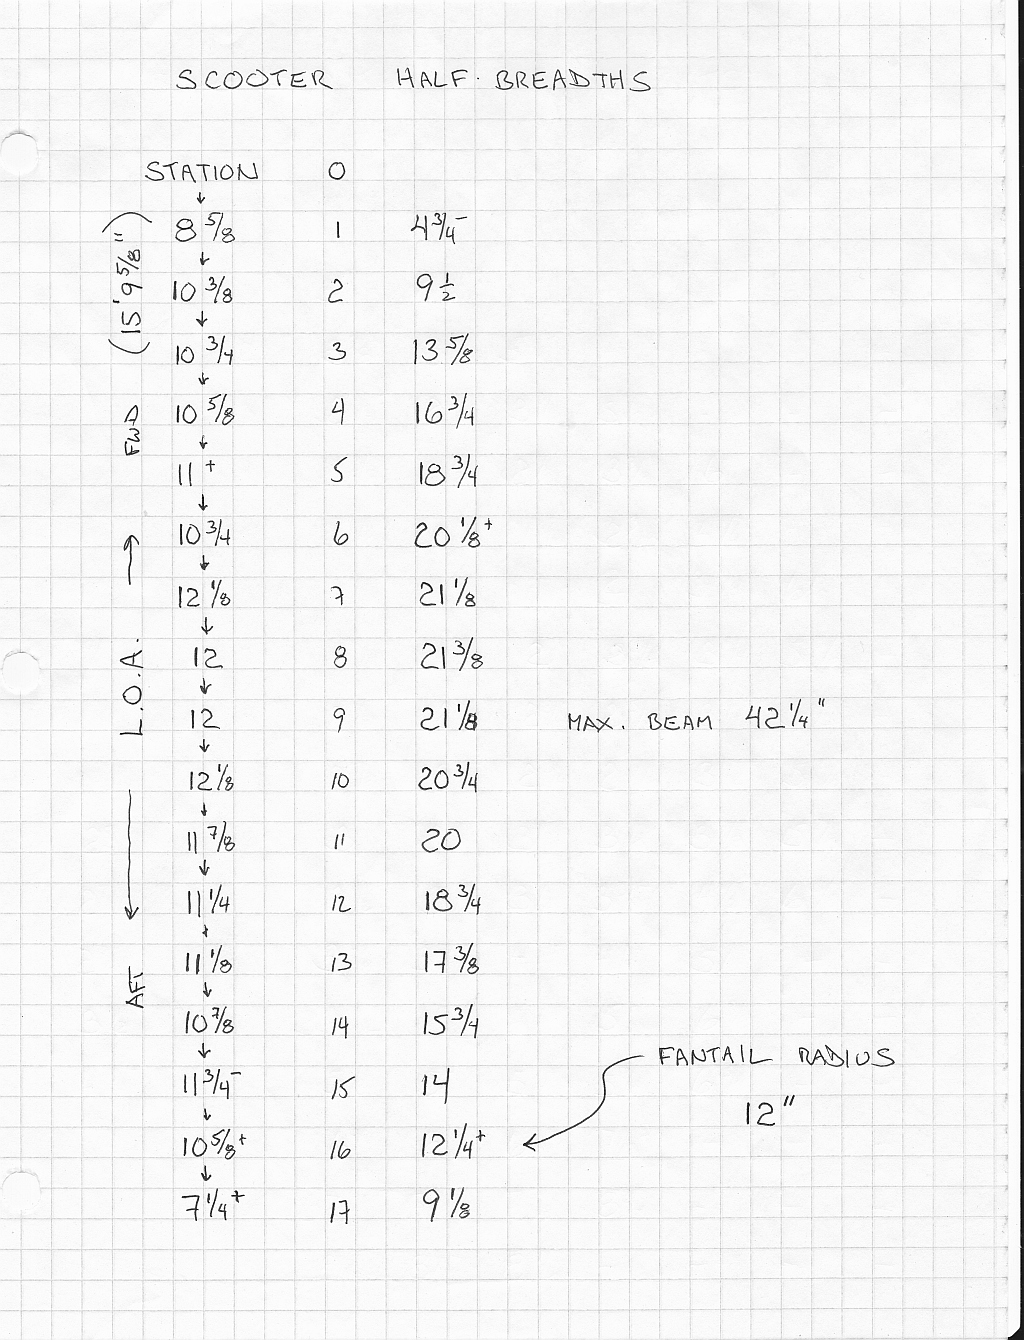 SCOOTER HALF-BREADTHS
STATION 0
↓
8 5/8 1 4 3/4-
↓
10 3/8 2 9 1/2
↓
10 3/4 3 13 5/8
↓
10 5/8 4 16 3/4
↓
11+ 5 18 3/4
↓
10 3/4 6 20 1/8+
↓
12 1/8 7 21 1/8
↓
12 8 21 3/8
↓
12 9 21 1/8 MAX. BEAM 42 1/4"
↓
12 1/8 10 20 3/4
↓
11 7/8 11 20
↓
11 1/4 12 18 3/4
↓
11 1/8 13 17 3/8
↓
10 7/8 14 15 3/4
↓
11 3/4- 15 14
↓
10 5/8+ 16 12 1/4+
↓
7 1/4+ 17 9 1/8
AFT ← L.O.A. → FWD (15' 9 5/8")
FANTAIL RADIUS
12"